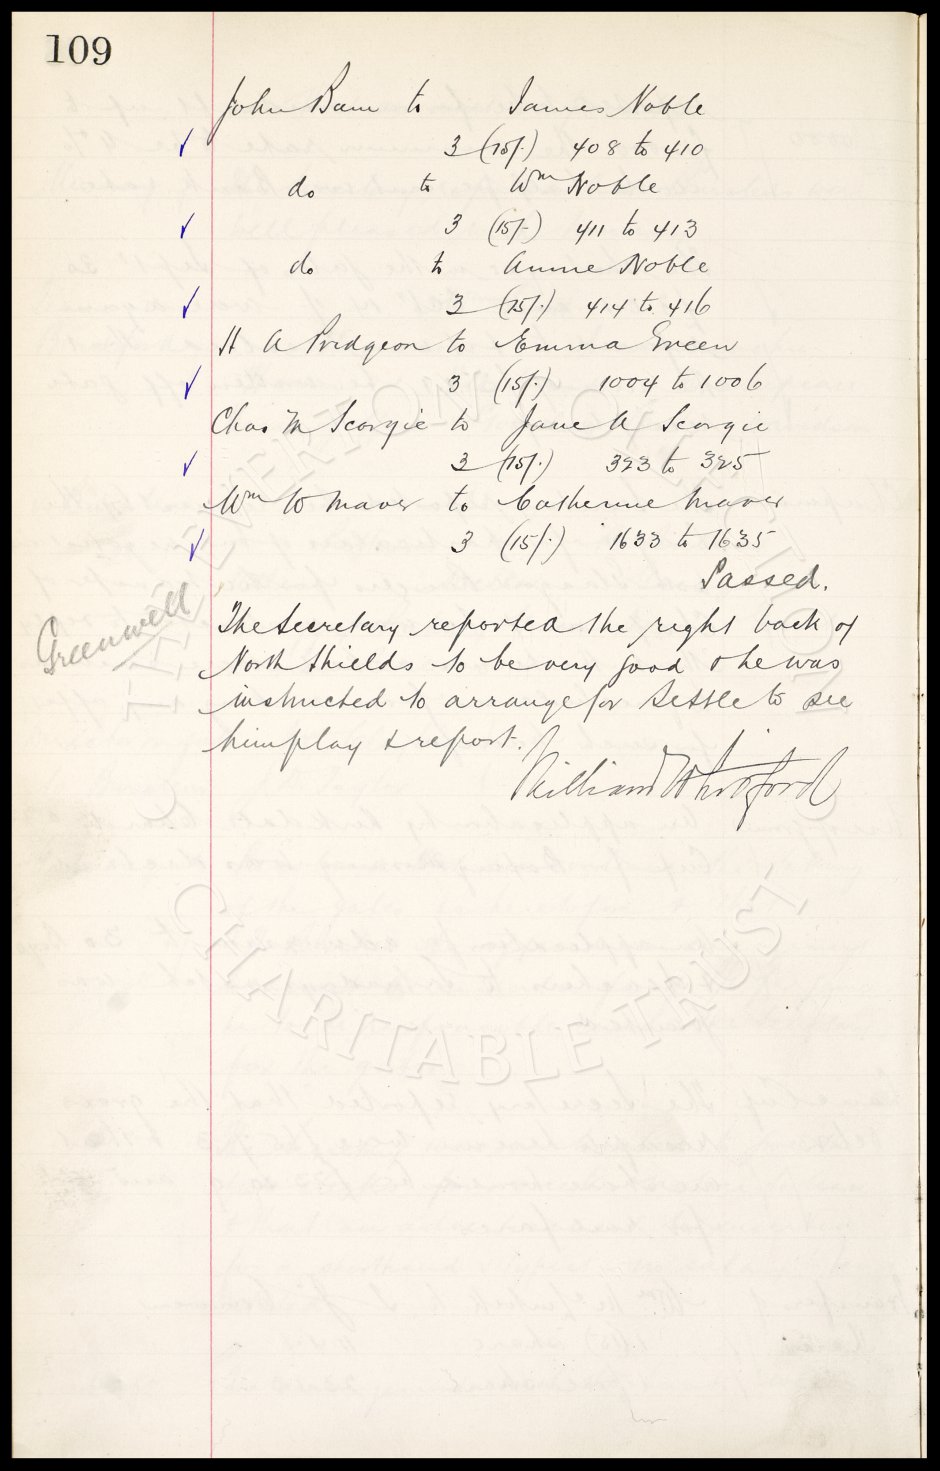 109
John Bain to James Noble
3 (15/-) 408 to 410
do to Wm Noble
3 (15/-) 411 to 413
do to Annie Noble
3 (15/-) 414 to 416
H A Pridgeon to Emma Green
3 (15/-) 1004 to 1006
Chas M Scorgie to Jane A Scorgie
3 (15/-) 323 to 325
Wm W Maver to Catherine Maver
3 (15/-) 1633 to 1635
Passed.
Greenwell
The Secretary reported the right back of
North Shields to be very good & he was
instructed to arrange for Settle to see
him play & report.
William Whitford
THE EVERTON COLLECTION
CHARITABLE TRUST